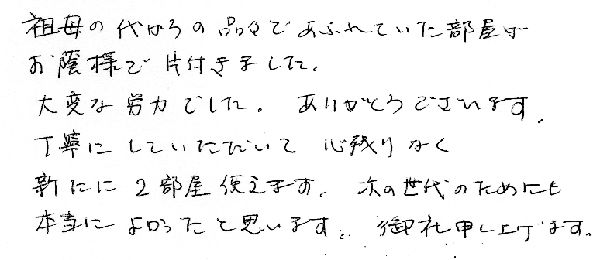 祖母の代からの品々であふれていた部屋が
お蔭様で片付きました。
大変な労力でした。ありがとうございます。
丁寧にしていただいて心残りなく
新たに2部屋使えます。次の世代のためにも
本当によかったと思います。御礼申し上げます。